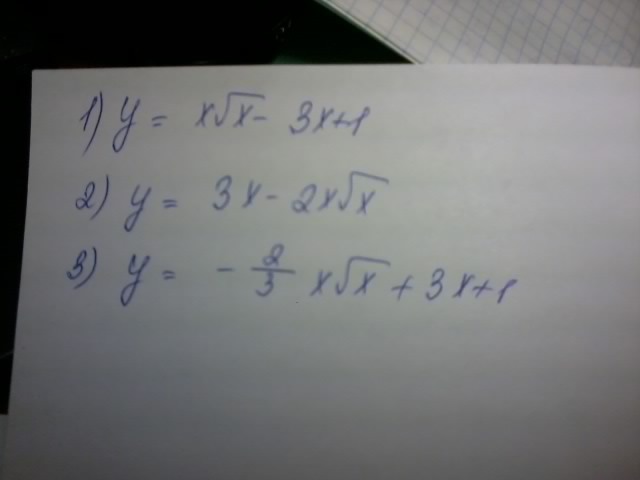 1) y = x√x - 3x+1
2) y = 3x - 2x√x
3) y = - 2/3 x√x + 3x+1